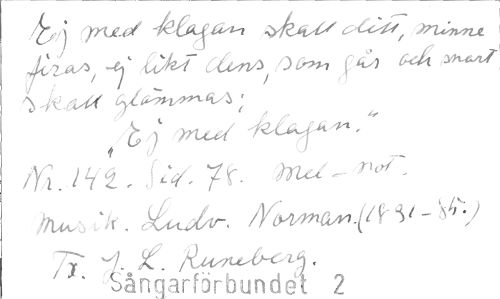 Ej med klagan skall ditt, minne
firas, ej likt dens, som går och snart
skall glömmas;
„Ej med klagan."
Nr. 142. Sid. 78. Mel-not.
Musik. Ludv. Norman. (1831-85.)
Tx. J. L. Runeberg.
Sångarförbundet 2